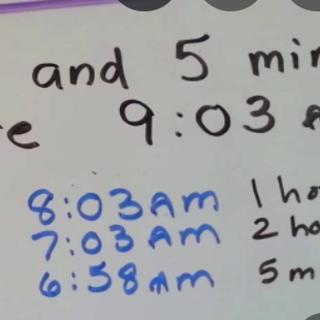 and 5 min
e 9:03 A
8:03 AM 1 ho
7:03 AM 2 ho
6:58 AM 5 m